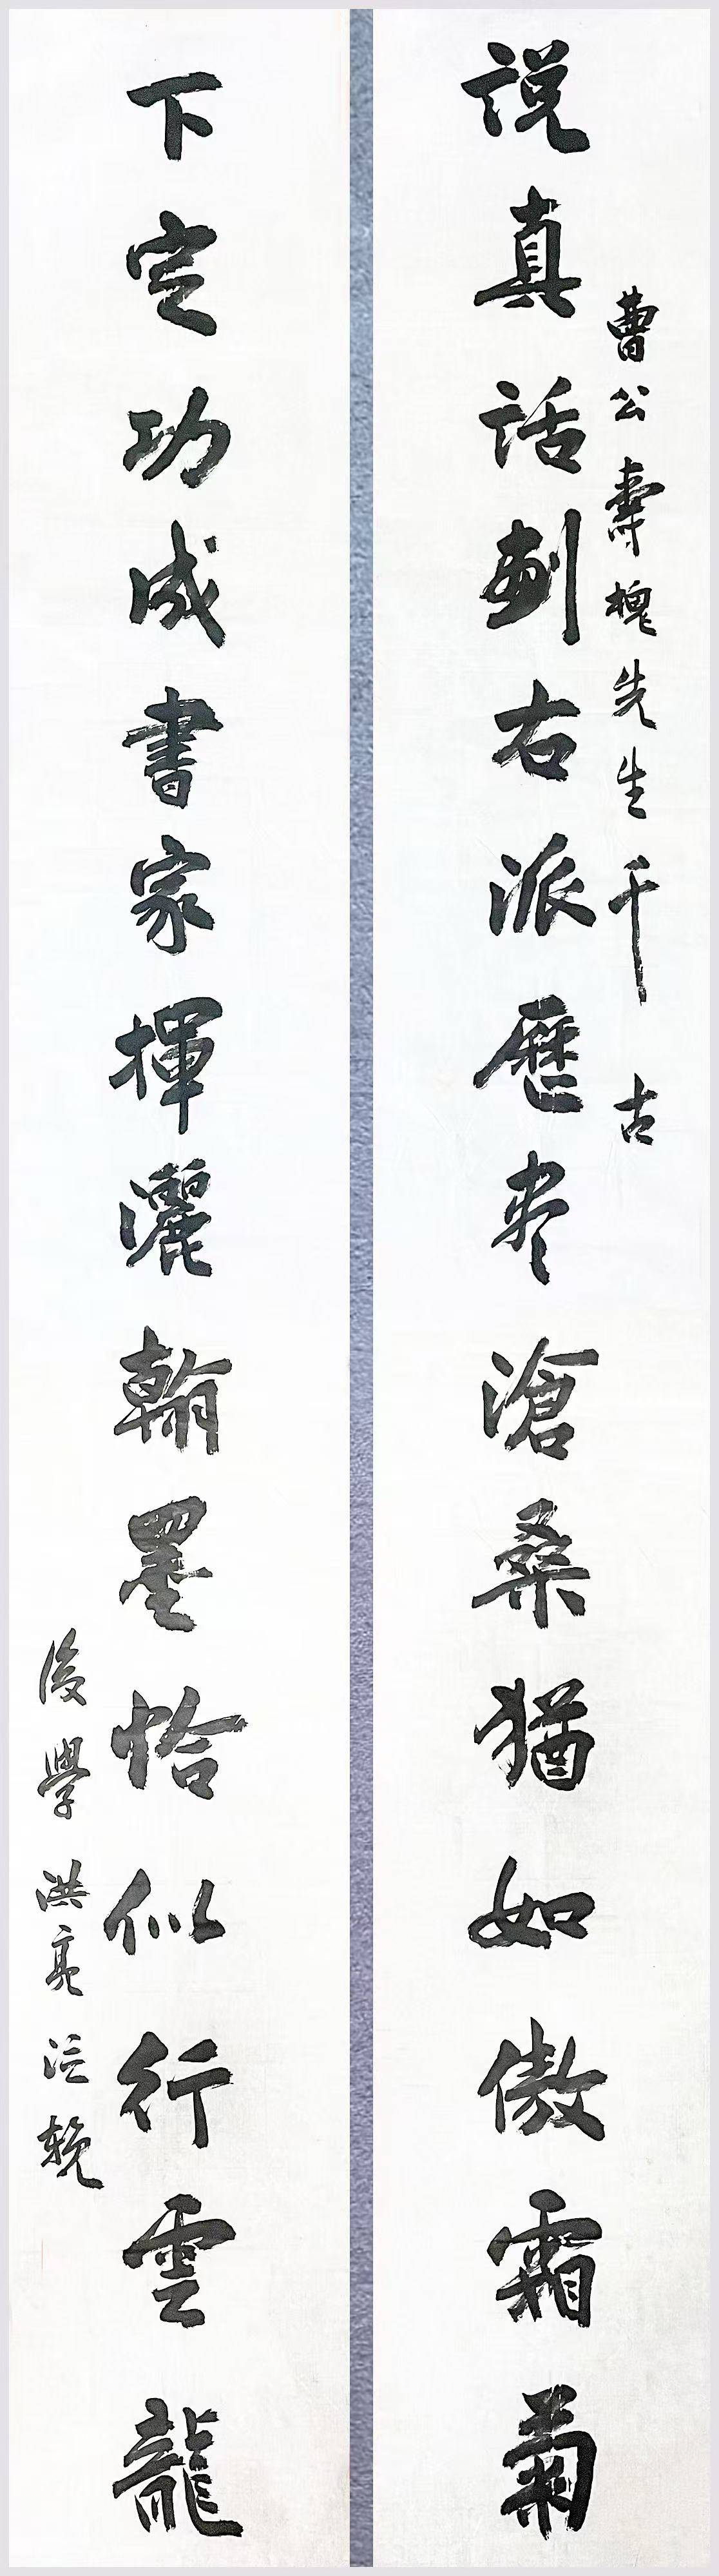 曹公壽槐先生千古
説真話劃右派歷盡滄桑猶如傲霜菊
下定功成書家揮灑翰墨恰似行雲龍
後學洪亮泣輓